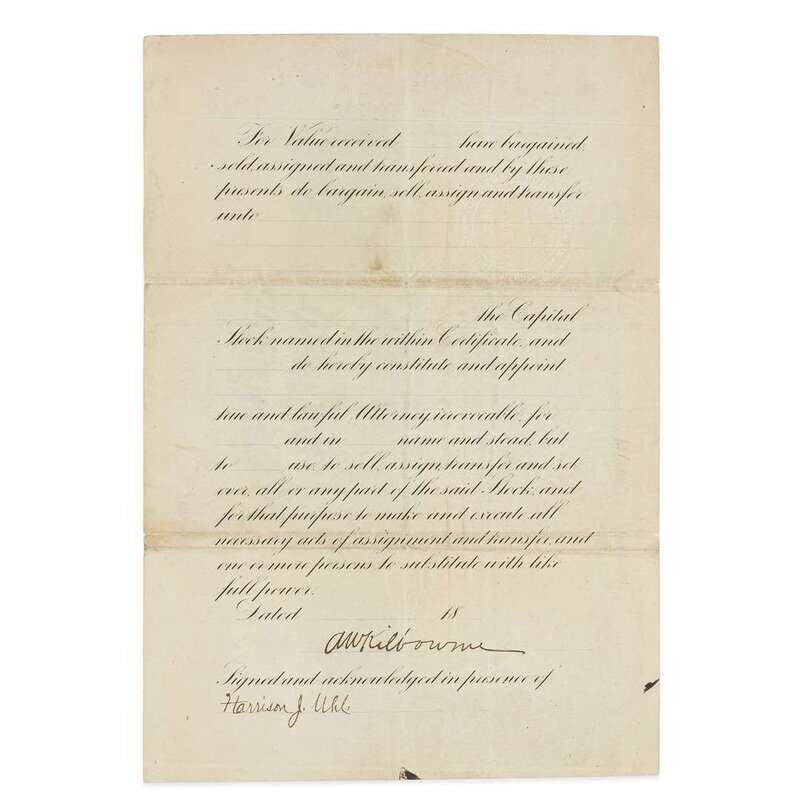 For Value received have bargained,
sold, assigned and transferred and by these
presents do bargain, sell, assign and transfer
unto
the Capital
Stock named in the within Certificate, and
do hereby constitute and appoint
true and lawful Attorney, irrevocable, for
and in name and stead, but
to use, to sell, assign, transfer and set
over, all or any part of the said Stock, and
for that purpose to make and execute all
necessary acts of assignment and transfer, and
one or more persons to substitute with like
full power.
Dated 18
AWKilbourne
Signed and acknowledged in presence of
Harrison J. Uhl.